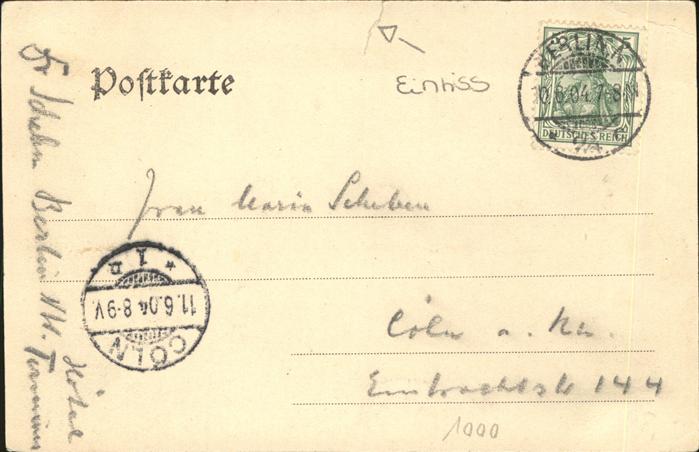 Postkarte
Einriss
5
BERLIN
.6.04.7-8N
DEUTSCHES REICH
Frau Maria Scheben
Cöln a. Rh.
Eintrachtstr 144
1000
CÖLN
11.6.04 8-9V.
* 1 n
Dr Scheben Berlin NW. Hôtel
Terminus